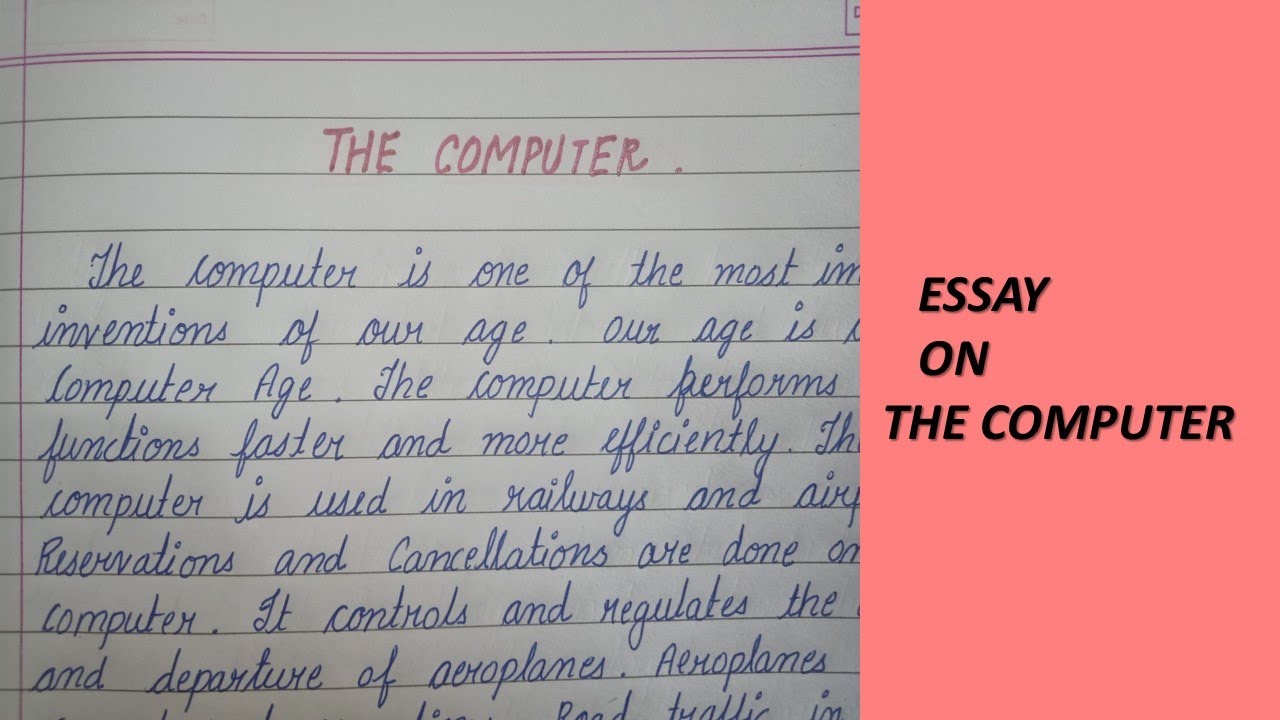 THE COMPUTER.
The computer is one of the most im
inventions of our age. Our age is
Computer Age. The computer performs
functions faster and more efficiently. The
computer is used in railways and airp
Reservations and Cancellations are done on
computer. It controls and regulates the
and departure of aeroplanes. Aeroplanes
Road traffic in
ESSAY
ON
THE COMPUTER